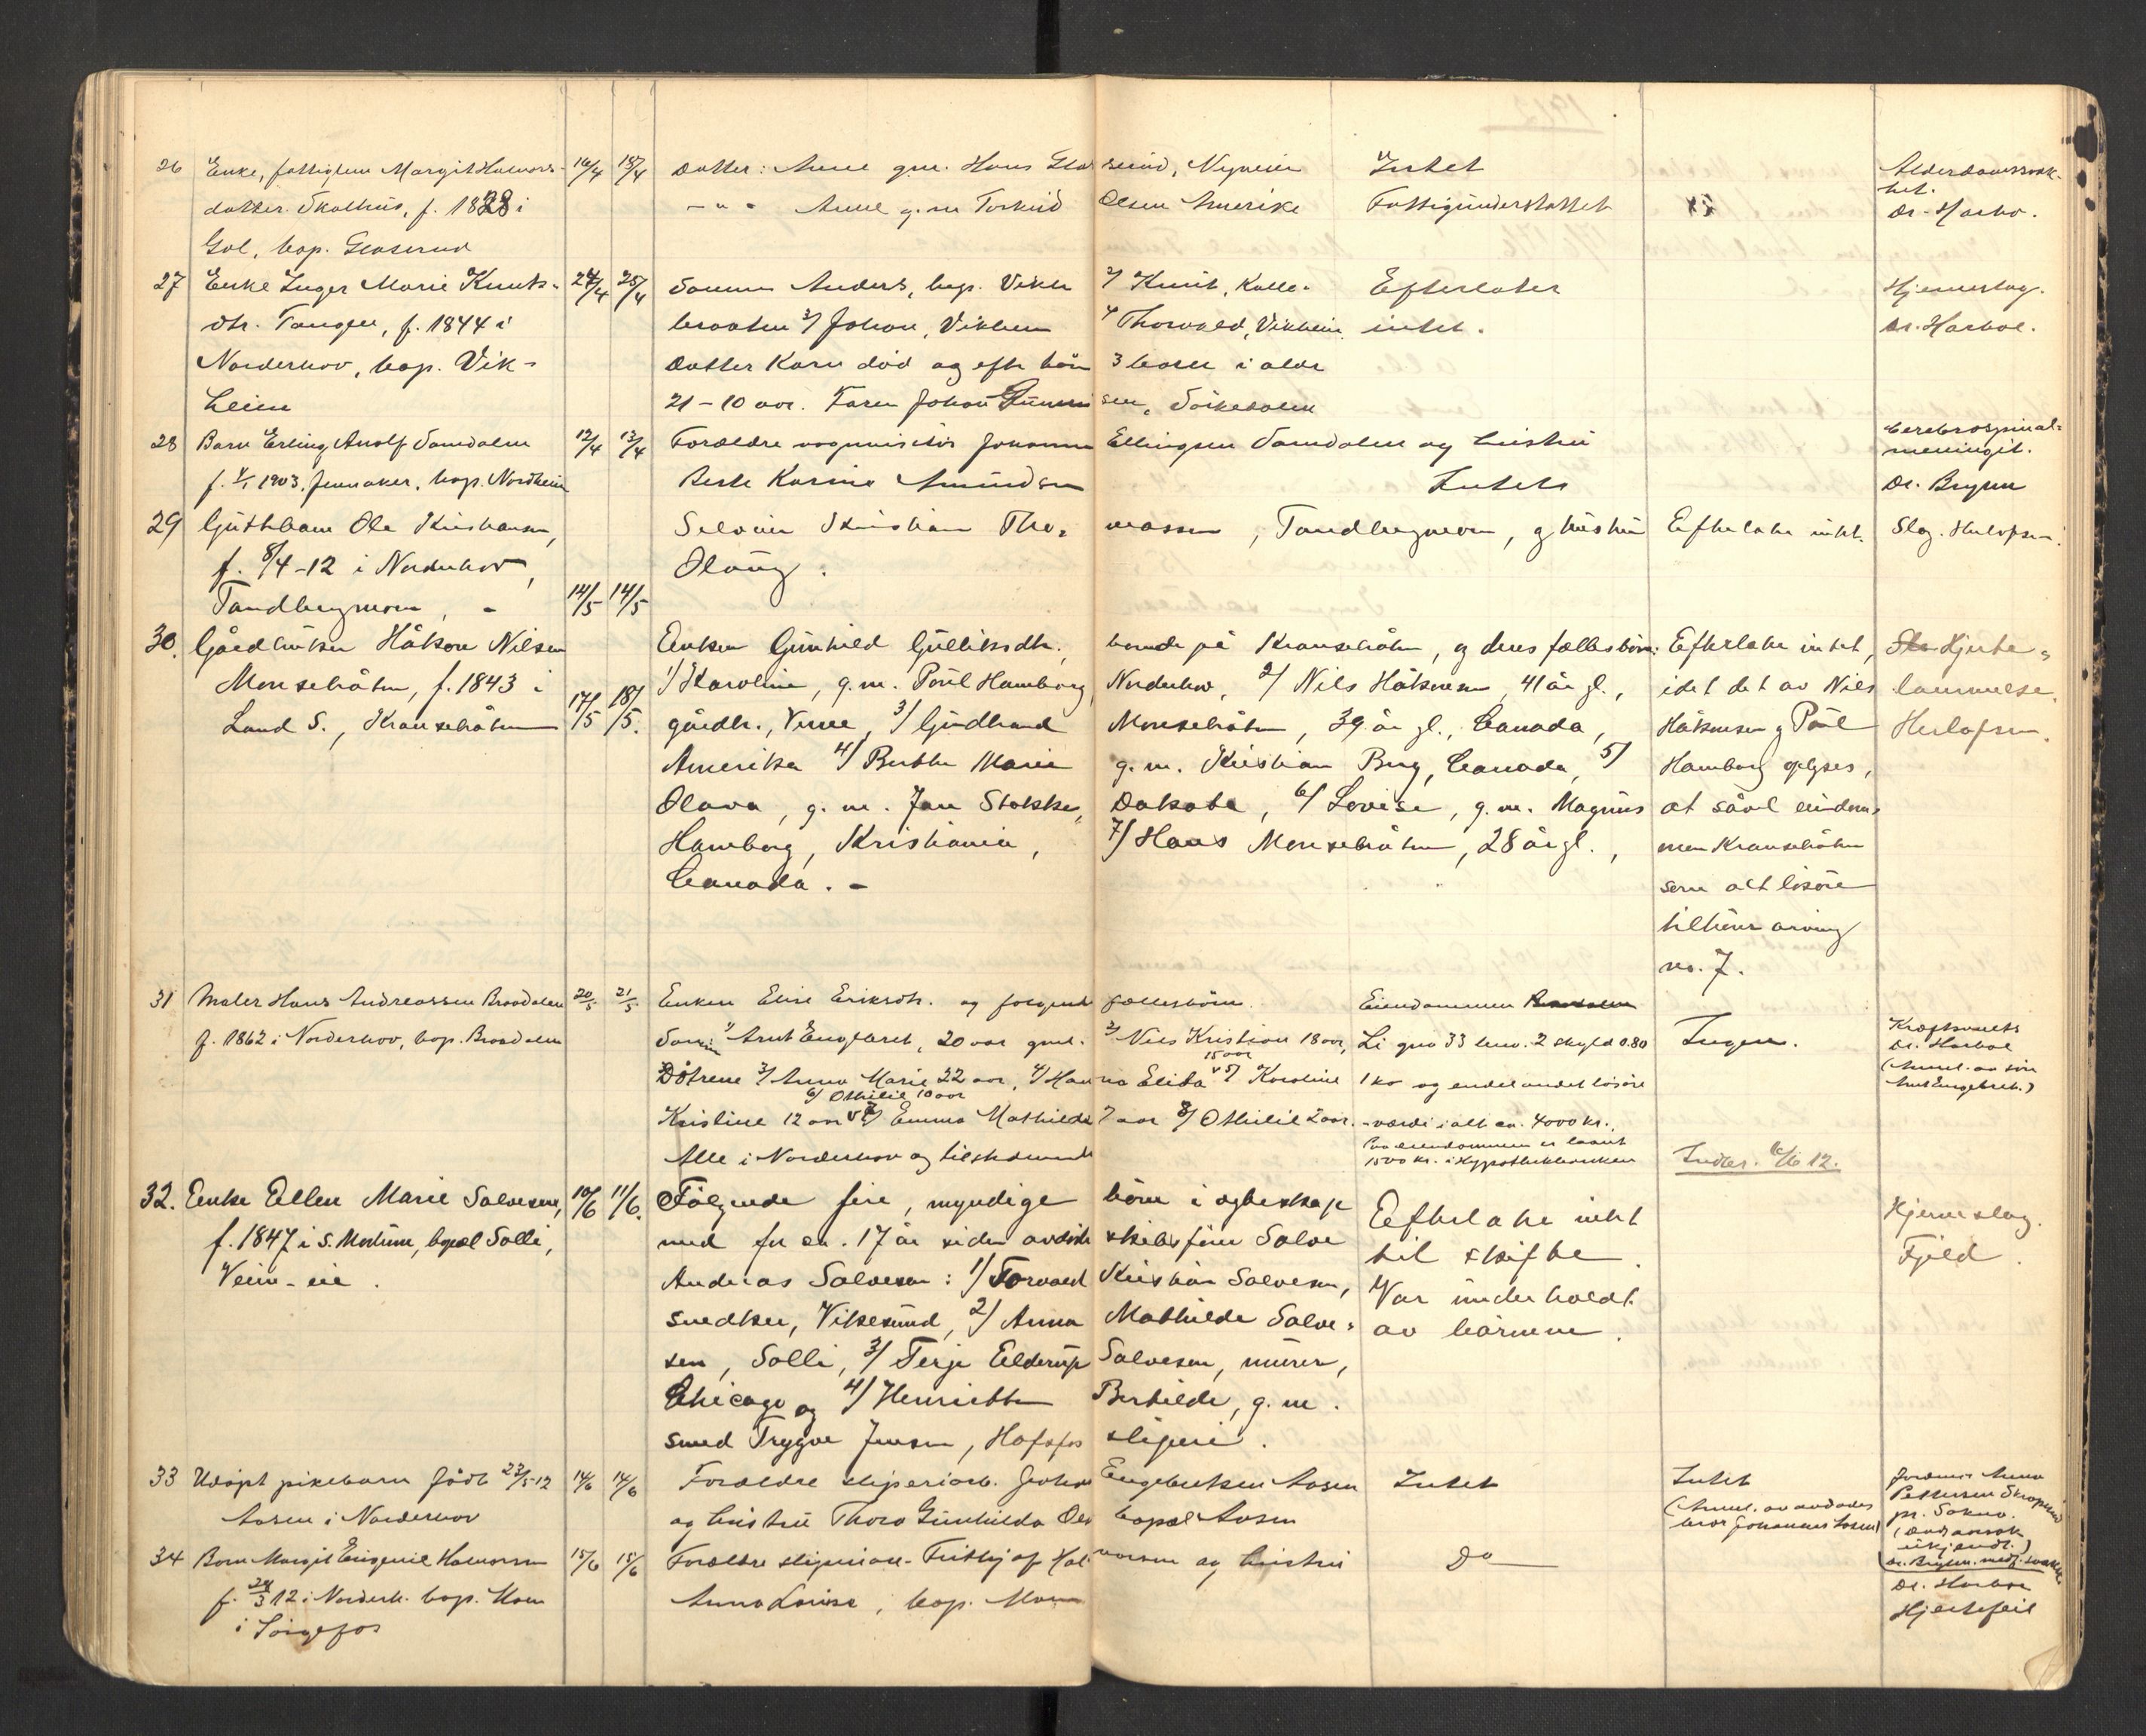 1912
26 Enke, fattiglem Margit Halvors-
datter Skalhus, f. 1828 i
Gol, bop. Glaserud
16/4 18/4
Datter: Anne gm. Hans Glaserud, Nymoen
- " - Anne g. m. Torkild Olsen Amerika
Intet
Fattigunderstøttet
Alderdomssvak-
het.
Dr. Harbo.
27 Enke Inger Marie Knuts-
dtr. Tangen, f. 1844 i
Norderhov, bop. Vik-
heim
24/4 25/4
Sønnen Anders, bop. Vikhe 2/ Knut, Kolle-
braaten 3/ Johan, Vikheim 4 Thorvald, Vikheim
Datter Karn død og efter hän 3 barn i alder
21-10 aar. Faren Johan Gunnersen, Sørkedalen
Efterlater
intet.
Hjerneslag.
Dr. Harboe.
28 Barn Erling Anolf Samdalen
f. 4/1 1903, Jevnaker, bop. Nordheim
12/4 13/4
Forældre vognvisitør Johannes Ellingsen Samdalen og hustru
Berte Karine Amundsen
Intet
Cerebrospinal-
meningit.
Dr. Brynn
29 Guttebarn Ole Kristiansen,
f. 8/4-12 i Norderhov,
Tandbergmoen, -
14/5 14/5
Selveier Kristian Thomassen, Tandbergmoen, g hustru
Olaug.
Efterlater intet.
Slag. Herlofsen.
30. Gårdbruker Håkon Nilsen
Monsebråten, f. 1843 i
Land S., Kransebråten
17/5 18/5.
Enken Gunhild Gulliksdtr., boende på Kransebråten, g deres fællesbörn:
1/ Karoline, g. m. Pöul Hamborg, Norderhov, 2/ Nils Håkonsen, 41 år gl.,
gårdbr., Verne, 3/ Gudbrand Monsebråten, 39 år gl., Canada,
Amerika 4/ Berthe Marie g. m. Kristian Berg, Canada, 5/
Olava, g. m. Jan Stokke, Dakota, 6/ Lovise, g. m. Magnus
Hamborg, Kristiania, 7/ Hans Monsebråten, 28 år gl.,
Canada. -
Efterlater intet,
idet det av Nils
Håkonsen g Pöul
Hamborg oplyses,
at såvel eiendom-
men Kransebråten
som alt løsøre
tilhører arving
no. 7.
Hjerte-
lammelse.
Herlofsen.
31 Maler Hans Andreassen Braadalen
f. 1862 i Norderhov, bop. Braadalen
20/5 21/5
Enken Elise Eriksdtr. og følgende fællesbörn.
Sønnen 1/ Arnt Engebret, 20 aar gml. 2/ Nils Kristian 18 aar,
Døtrene 3/ Anna Marie 22 aar, 4/ Hanna Elida 15 aar 5/ Karoline
Kristine 12 aar 6/ Othilie 10 aar 7/ Emma Mathilde 7 aar 8/ Othilie 2 aar.
Alle i Norderhov og tilstedeværende
Eiendommen
Li gno 33 brno. 2 skyld 0.80
1 ko og endel andet løsøre
- værdi i alt ca. 4000 kr.
Paa eiendommen er laant
1500 kr. i Hypothekbanken
Ingen.
Indber. 6/6 12.
Kræftsvulst
Dr. Harboe
(Anmel. av søn
Arnt Engebret.)
32. Enke Ellen Marie Salvesen,
f. 1847 i S. Modum, bopæl Solli,
Veim-eie.
10/6 11/6.
Følgende fire, myndige börn i egteskap
med for ca. 17 år siden avdøde skibsfører Salve
Andreas Salvesen: 1/ Torvald Kristian Salvesen,
snedker, Vikesund, 2/ Anna Mathilde Salve-
sen, Solli, 3/ Terje Elderup Salvesen, murer,
Chicago og 4/ Henriette Bertilde, g. m.
smed Trygve Jensen, Hofsfos sliperi.
Efterlater intet
til skifte.
Var underholdt
av börnene.
Hjerneslag.
Fjeld.
33 Udøpt pikebarn født 23/5-12
Aasen i Norderhov
14/6 14/6
Forældre sliperiarb. Johan Engebretsen Aasen
og hustru Thora Gunhilda Ols bopæl Aasen
Intet
Intet
(Anmel. av avdødes
bror Johannes Aasen)
Jordmor Anna
Pettersen Skrapind
pr. Sokna.
(Dødsaarsak
ukjendt.)
34 Barn Margit Eugenie Halvorsen
f. 24/3 12 i Norderh. bop. Moen
i Sørgefos
15/6 15/6
Forældre sliperiarb. Fritjof Halvorsen og hustru
Anna Lovise, bop. Moen
Do
Dr. Harboe
Hjertefeil